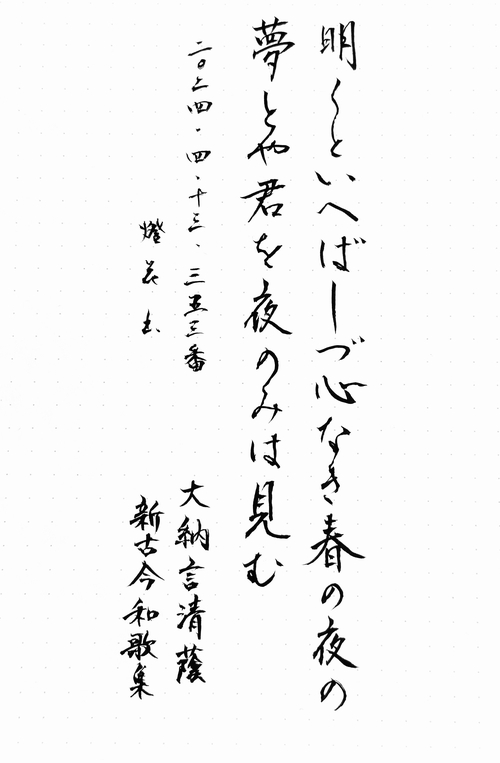 明くといへばしづ心なき春の夜の
夢とや君を夜のみは見む
大納言清蔭
新古今和歌集
二〇二四・四・十三、三五三番
燈花